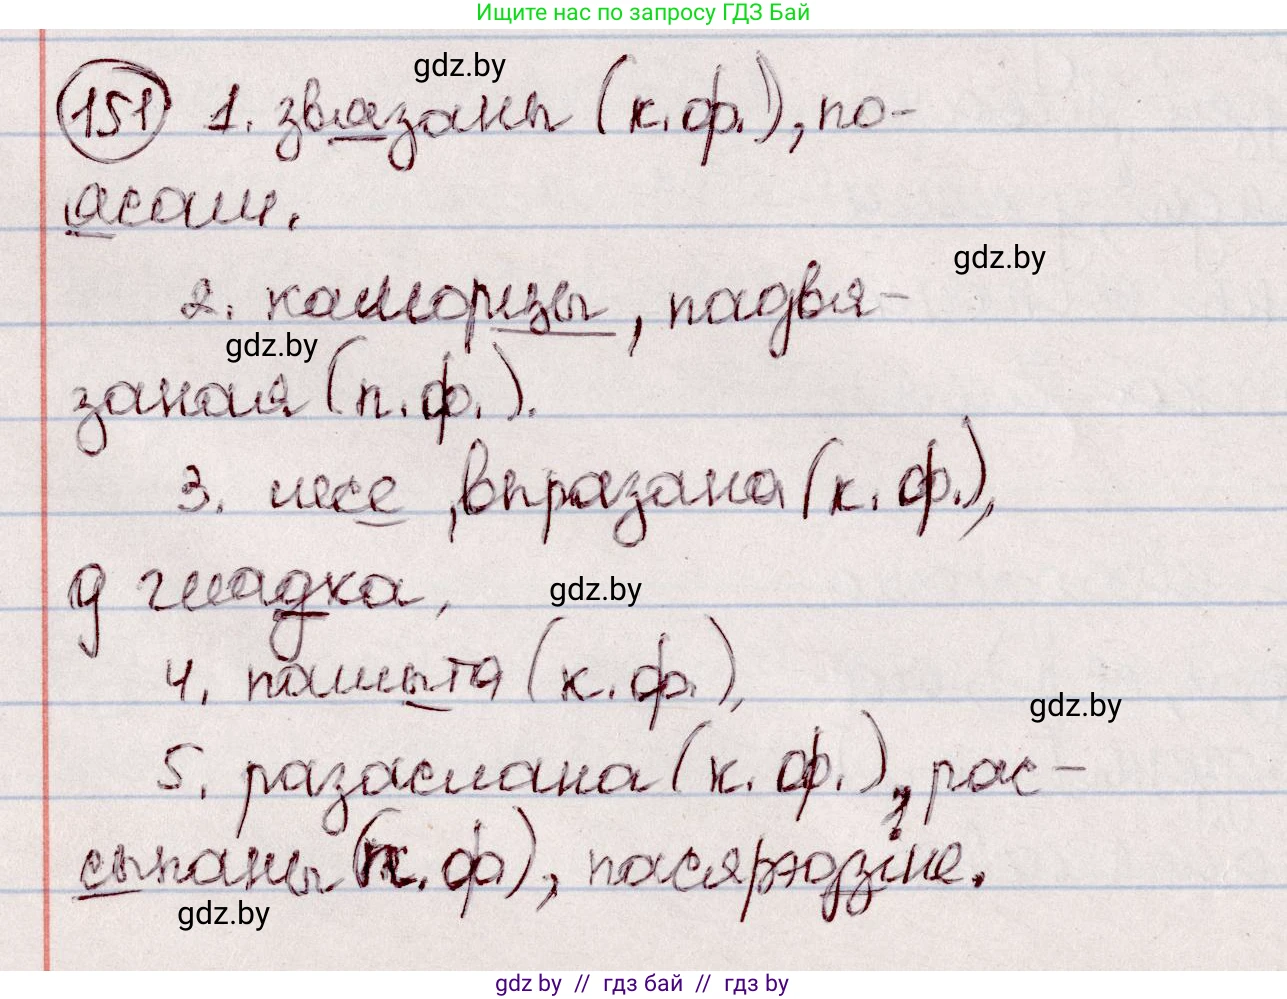 Ищите нас по запросу ГДЗ Бай
gdz.by
151 1. звязаны (к.ф.), по-
ясам.
gdz.by
2. каморцы, падвя-
gdz.by
заная (п.ф.).
3. шсе, впразана (к.ф.),
д гладка,
gdz.by
4. пашыта (к.ф.),
gdz.by
5. разаслана (к.ф.), рас-
сыпаны (к.ф), пасярэдзіне.
gdz.by
gdz by // гдз бай // гдз by